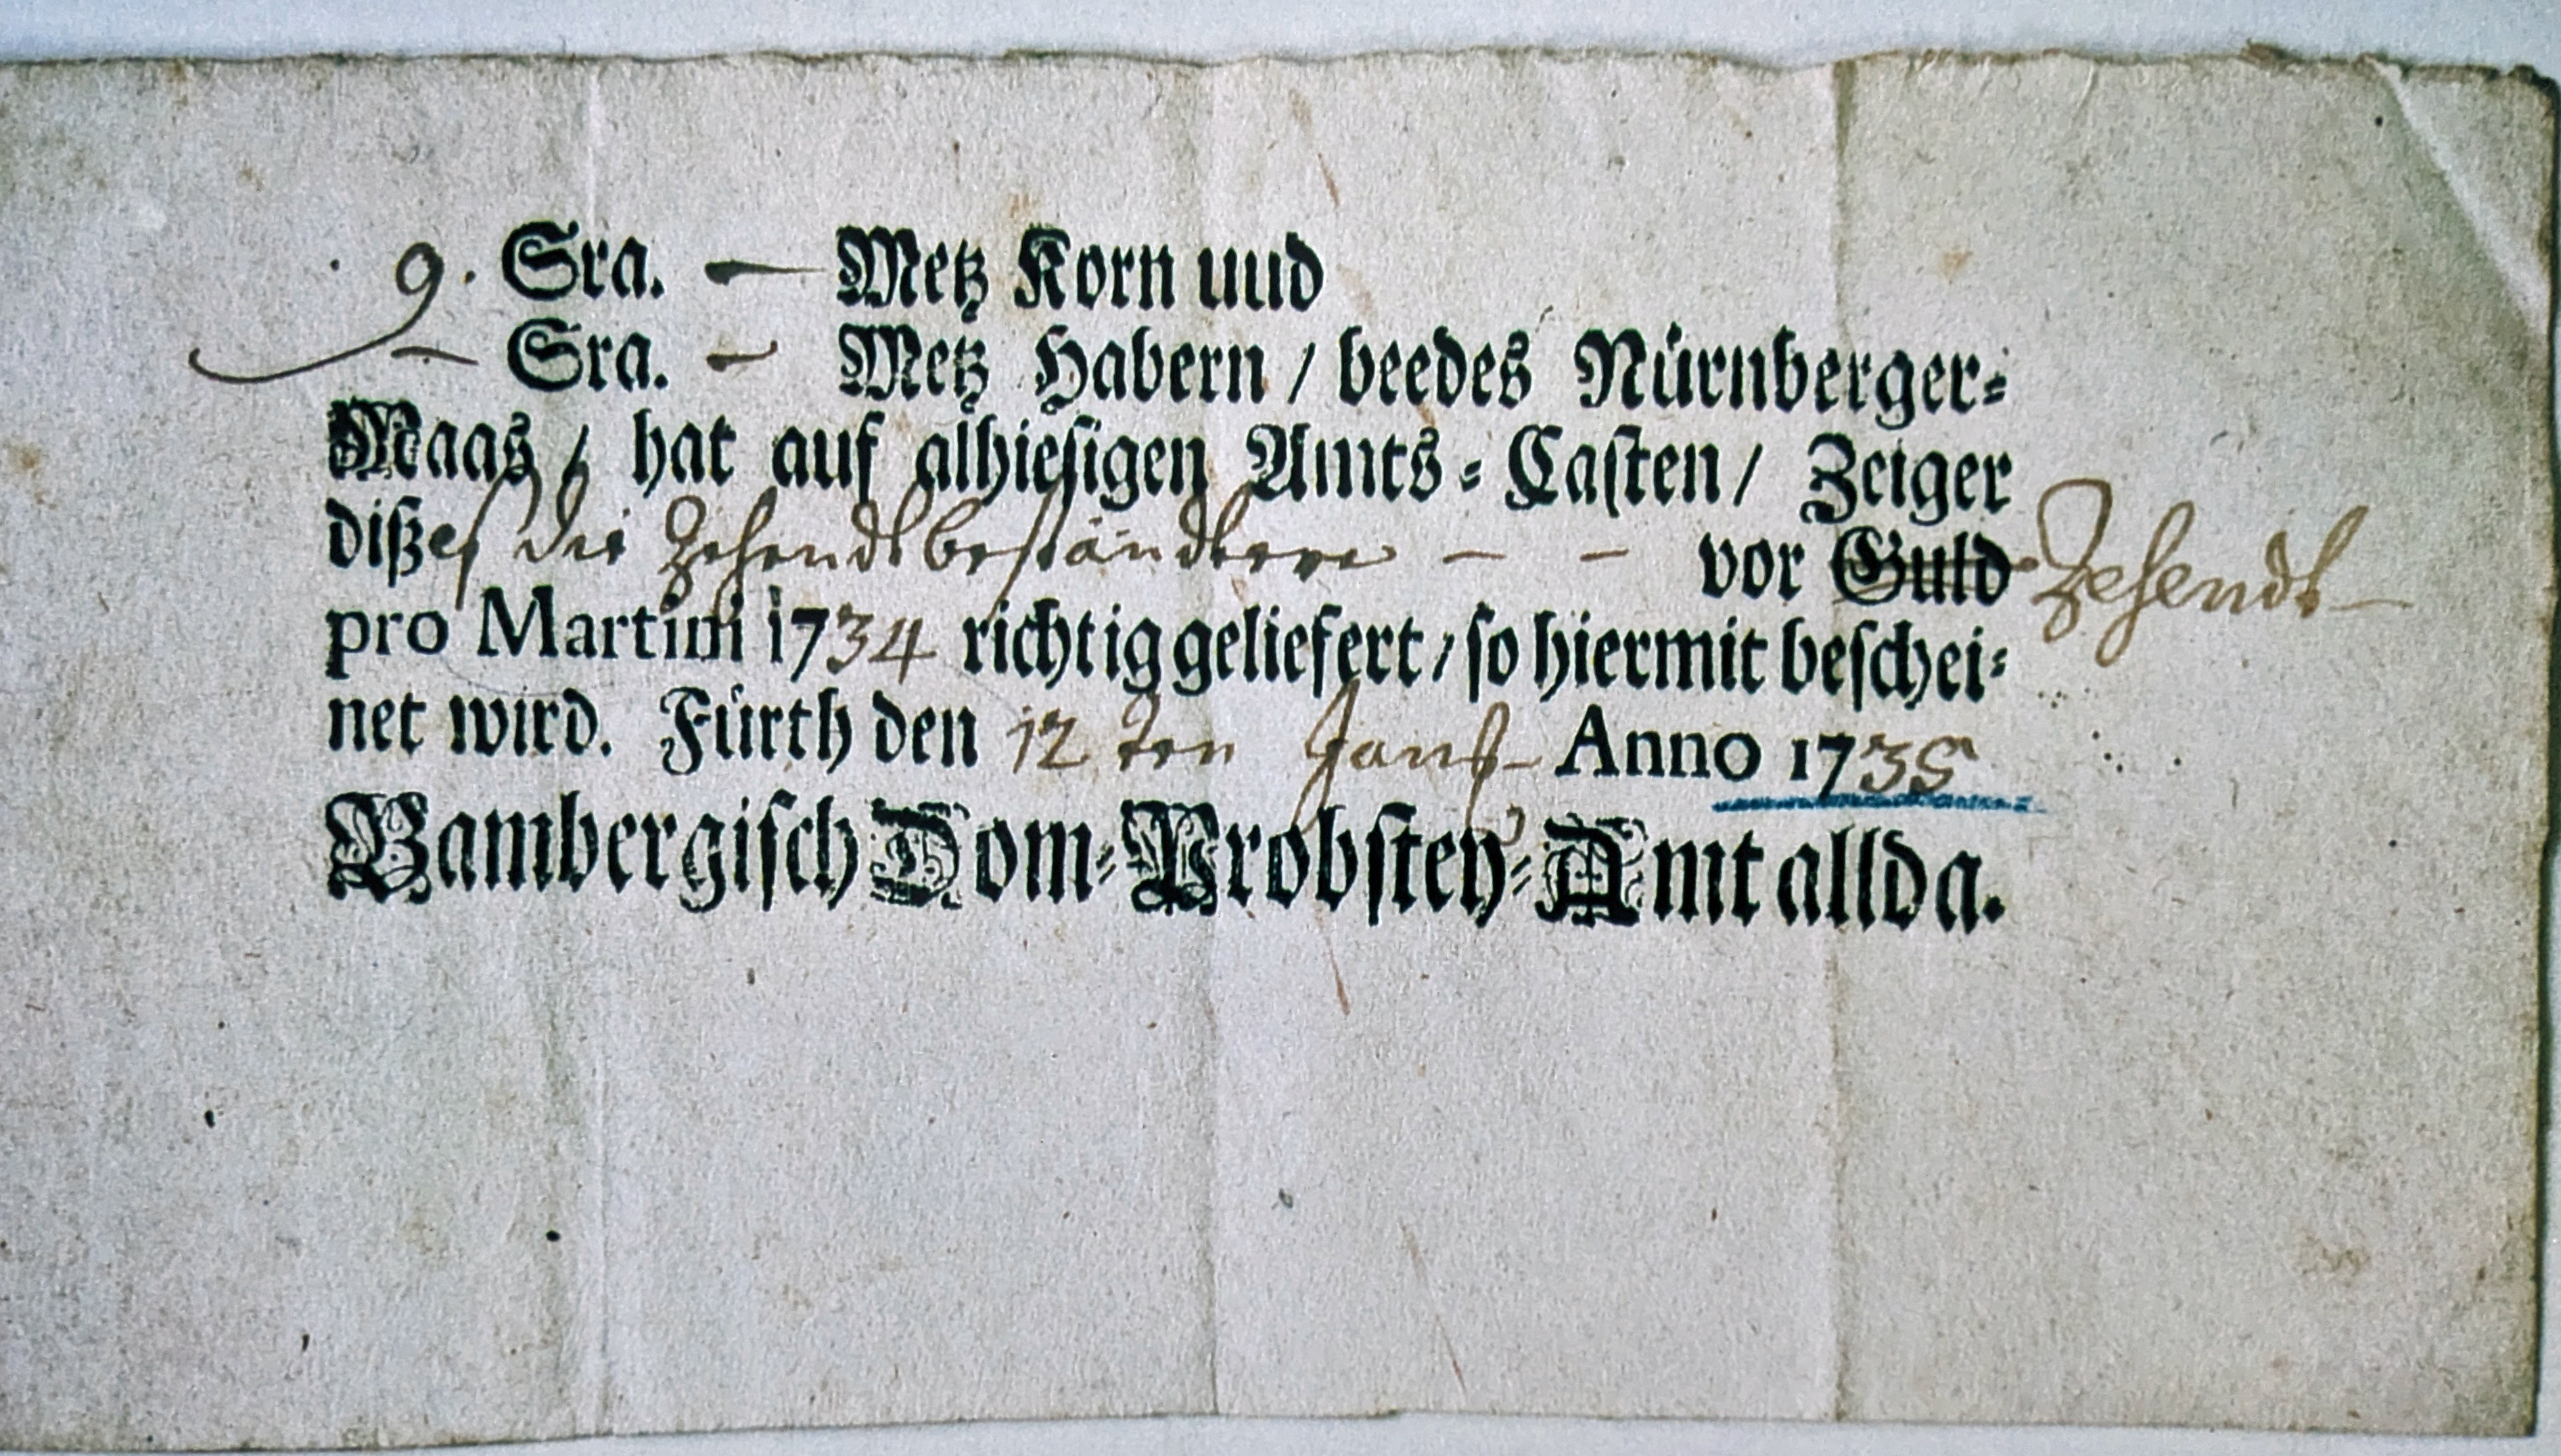 9. Sra. — Metz Korn und
— Sra. — Metz Habern / beedes Nürnberger=
Maas / hat auf alhiesigen Amts = Casten / Zeiger
dißes die Zehendtbeständtnere — — vor Guld Zehendt
pro Martini 1734 richtig geliefert / so hiermit beschei=
net wird. Fürth den 12 ten Anno 1735
Bambergisch Dom=Probstey=Amt allda.